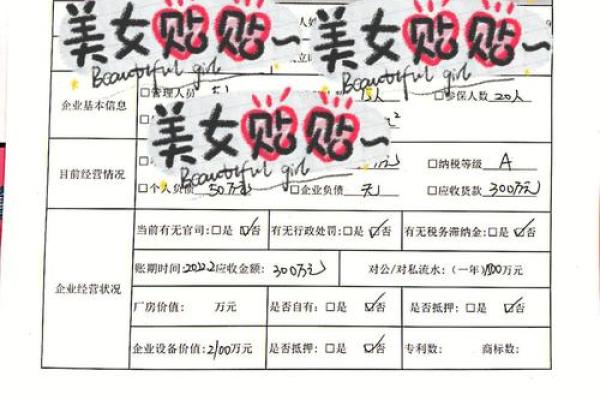 美女贴贴~ 美女贴贴~
Beautiful girl Beautiful girl
企业基本信息 □管理人员 5人 15人 □参保人数 20人
美女贴贴~
Beautiful girl
目前经营情况 □纳税等级 A
□个人负债 50万元 □企业负债 无 □应收货款 300万元
企业经营状况
当前有无官司:□是 ☑否 有无行政处罚:□是 ☑否 有无税务滞纳金:□是 ☑否
账期时间:2022.2 应收金额: 300万元 对公/对私流水:(一年) 万元
厂房价值: 万元 是否自有:□是 ☑否 是否抵押:□是 ☑否
企业设备价值: 2100万元 是否抵押:□是 ☑否 专利数: 商标数: